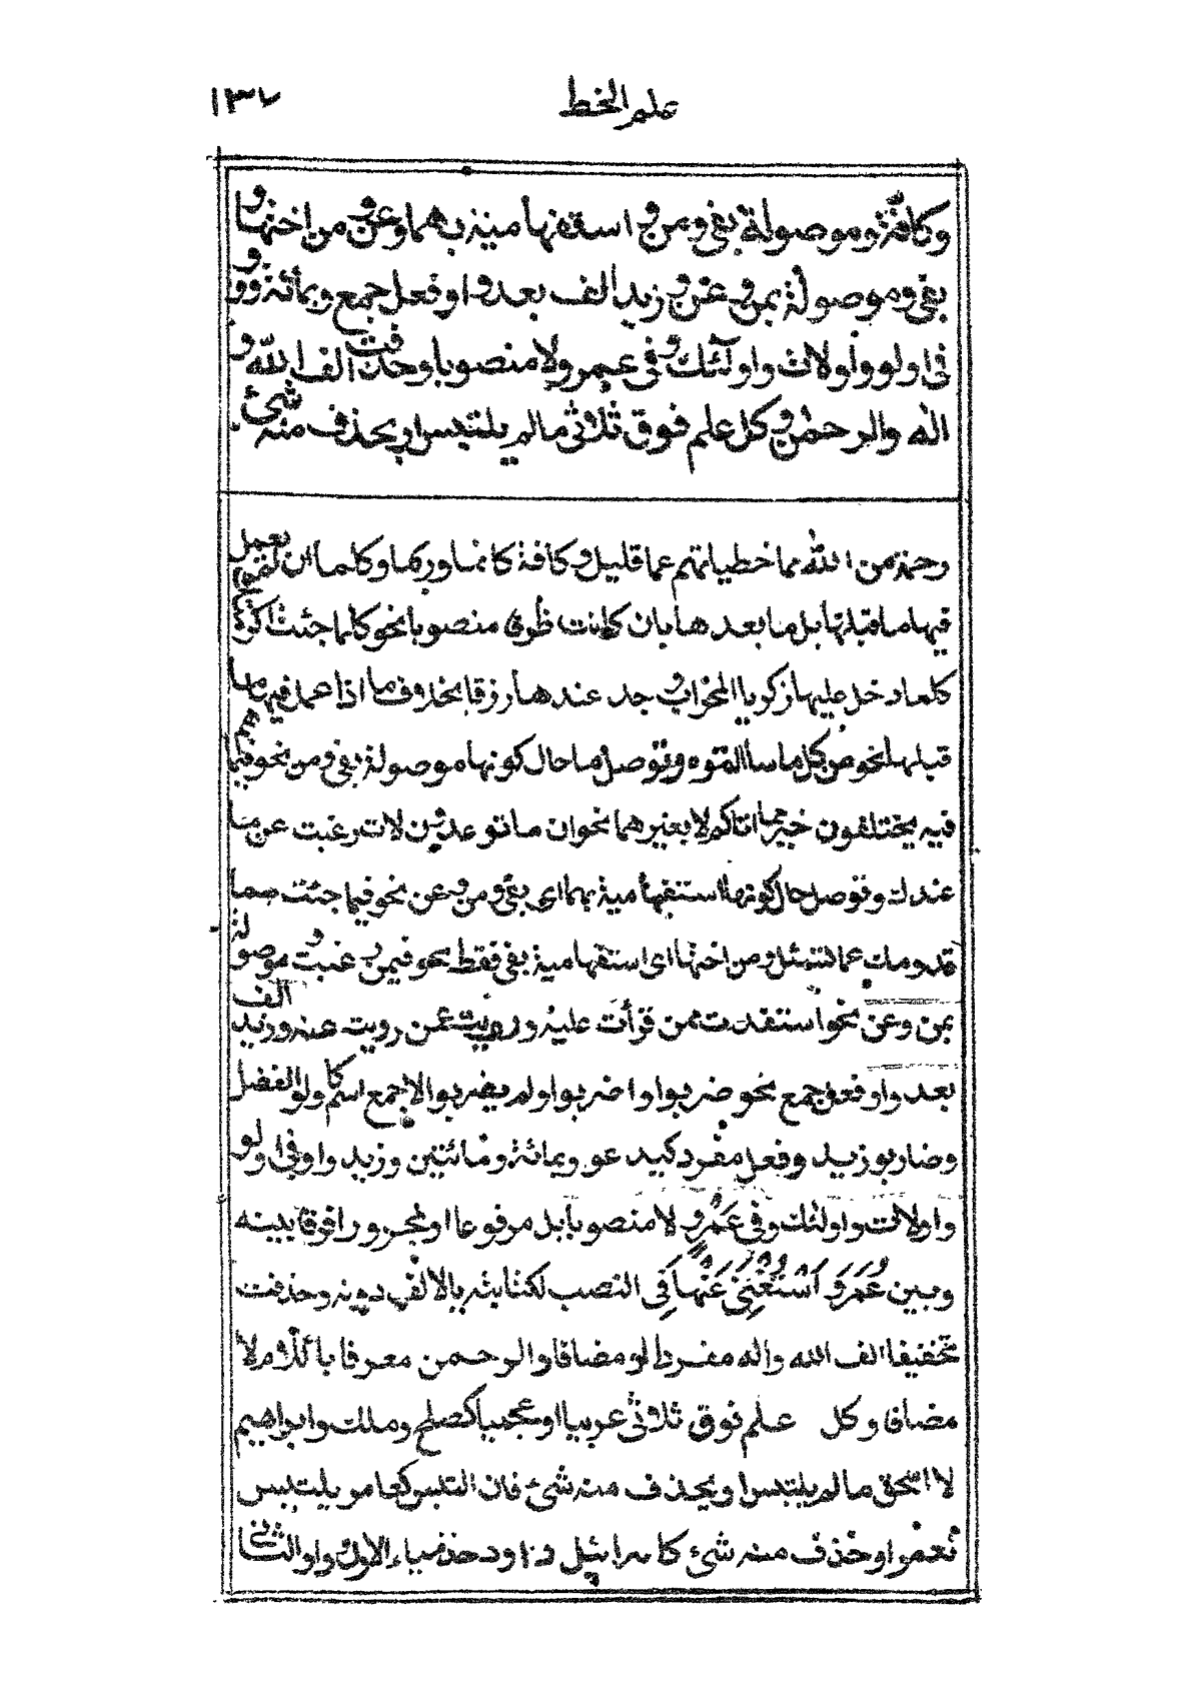 علم الخط
١٣٧
وكافة وموصولة بفي ومن و استفهامية بهما وعن و من اختها و
بفي وموصولة بمن و عن و زيد الف بعد واو فعل جمع وبمائة و و
في اولو واولات واولئك و في عمرو لا منصوبا وحذفت الف الله و
اله والرحمن و كل علم فوق ثلاثي ما لم يلتبس او يحذف منه شئ
رحمة من الله مما خطياتهم عما قليل و كافة كانما وربما وكلما ان لم يعمل
فيها ما قبلها بل ما بعدها بان كانت ظرفا منصوبا نحو كلما جئت
كلما دخل عليها زكريا المحراب وجد عندها رزقا بخلاف ما اذا عمل فيها ما
قبلها نحو من كل ما سالتموه وتوصل ما حال كونها موصولة بفي ومن نحو فيما
فيه يختلفون خير مما اتاكم لا بغيرهما نحو ان ما توعدون لات رغبت عن ما
عندك وتوصل حال كونها استفهامية بهما اي بفي ومن و عن نحو فيما جئت مما
قدومك عما تسئل ومن اختها اي استفهامية بفي فقط نحو فيمن رغبت و موصولة
بمن وعن نحو استفدت ممن قرأت عليه ورويت عمن رويت عنه وزيد الف
بعد واو فعل جمع نحو ضربوا واضربوا ولم يضربوا لا جمع اسم كاولو الفضل
وضاربو زيد وفعل مفرد كيدعو وبمائة ومائتين وزيد واو في اولو
واولات واولئك وفي عمرو لا منصوبا بل مرفوعا او مجرورا فرقا بينه
وبين عمر و استغني عنها في النصب لكتابته بالالف دونه وحذفت
تخفيفا الف الله واله مفردا او مضافا والرحمن معرفا باللام لا
مضافا وكل علم فوق ثلاثي عربيا او عجميا كصلح وملك وابراهيم
لا اسحق ما لم يلتبس او يحذف منه شئ فان التبس كعامر يلتبس
بعمر او حذف منه شئ كاسرائيل و داود حذف ياء الاول وواو الثاني